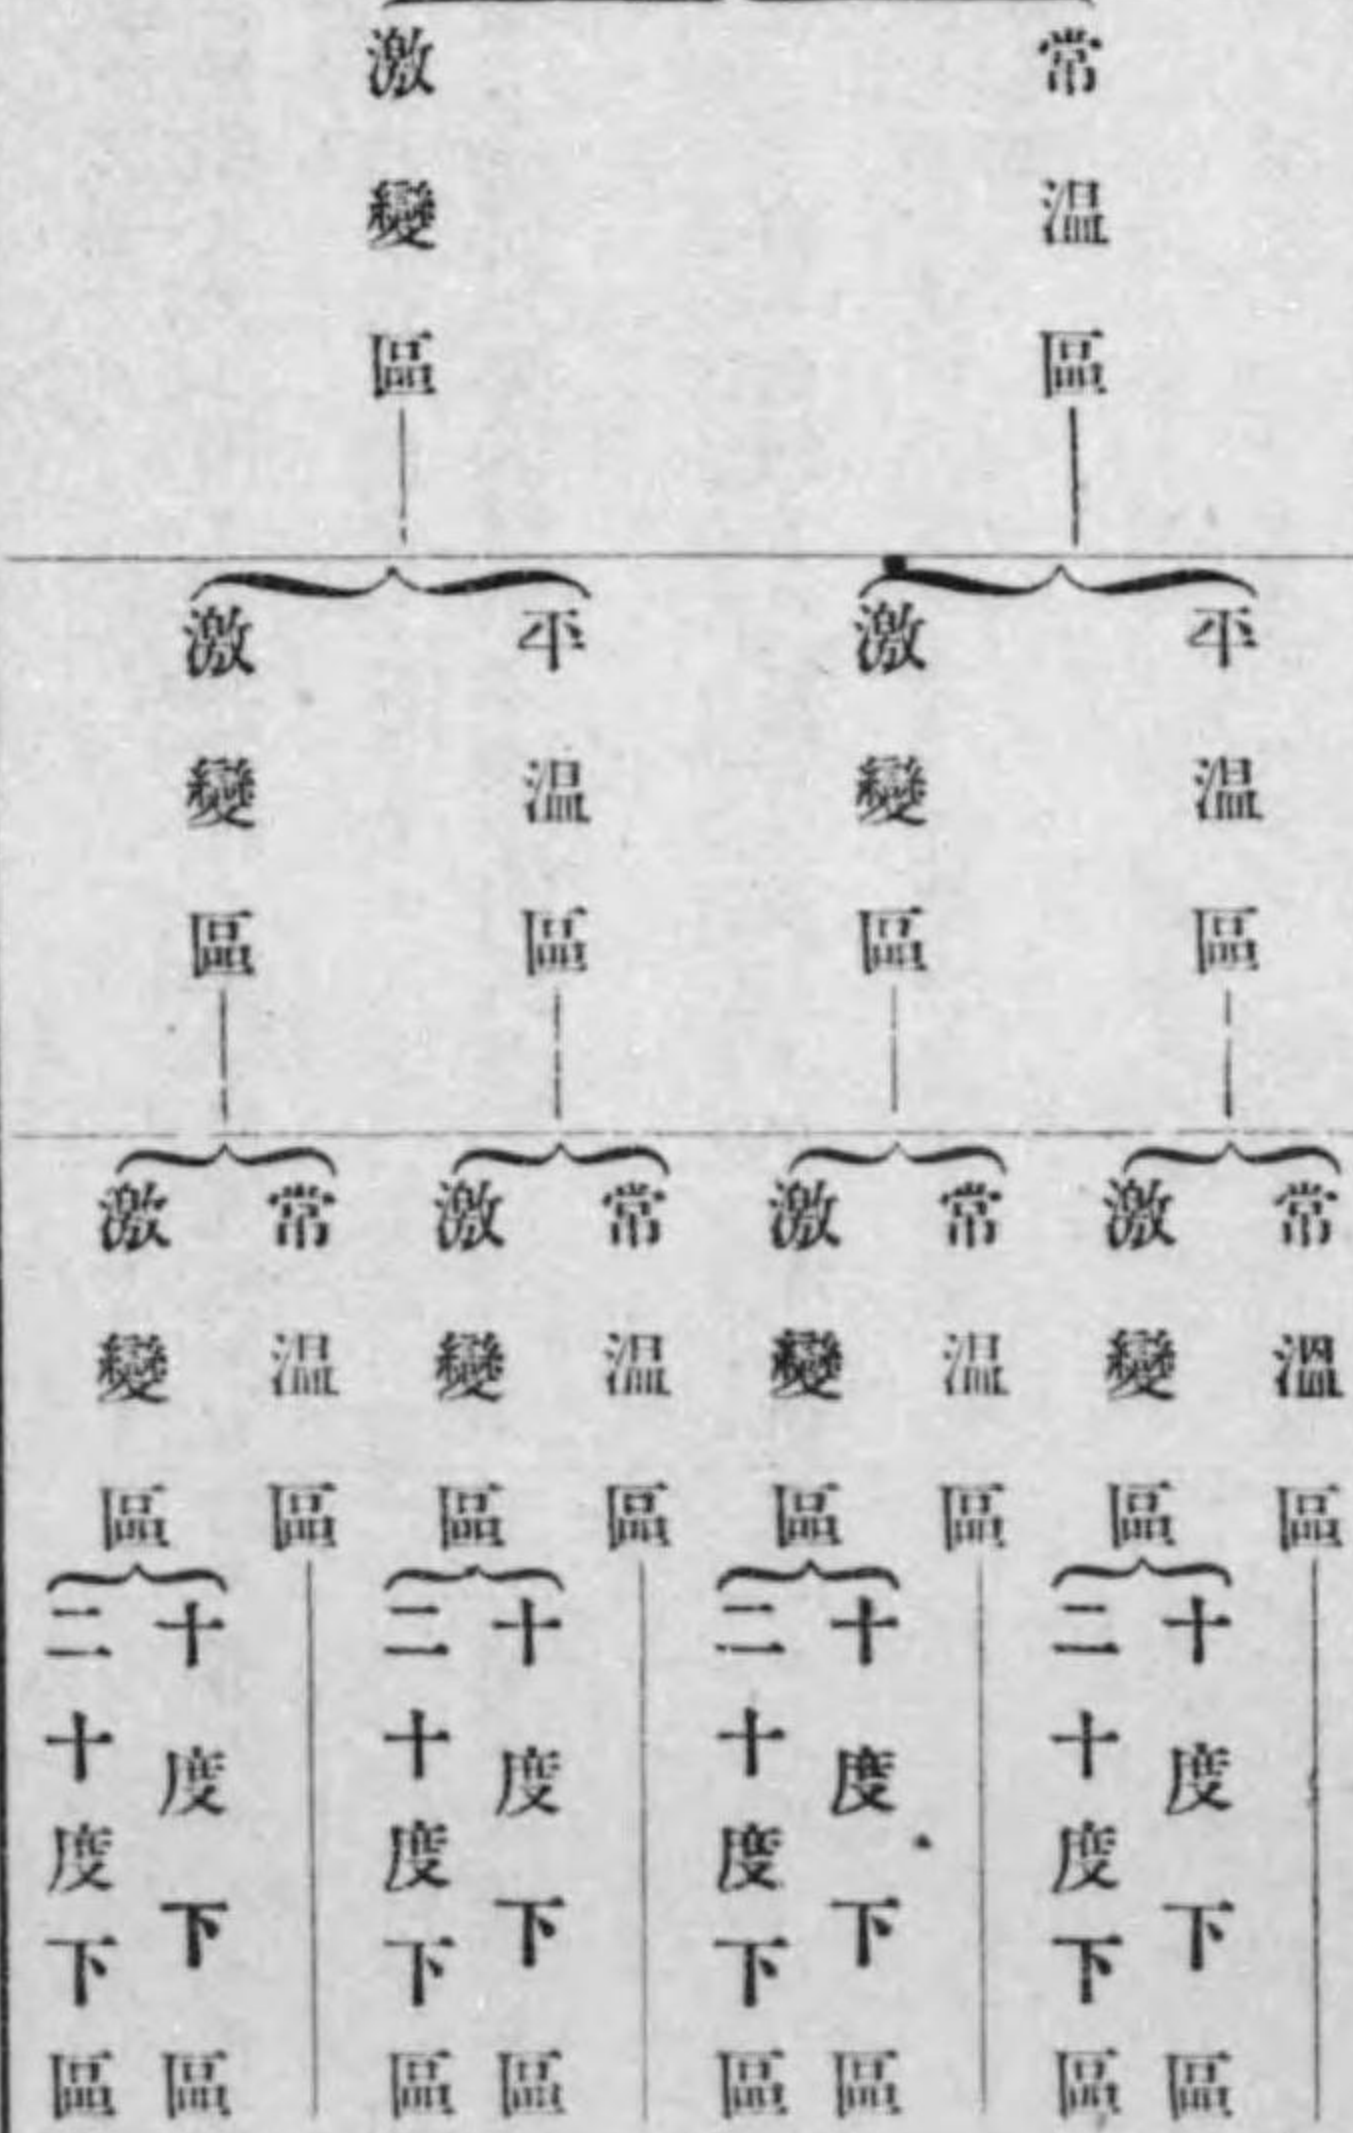 常温區
激變區
平温區
激變區
平温區
激變區
常溫區
激變區
常温區
激變區
常温區
激變區
常温區
激變區
十度下區
二十度下區
十度下區
二十度下區
十度下區
二十度下區
十度下區
二十度下區